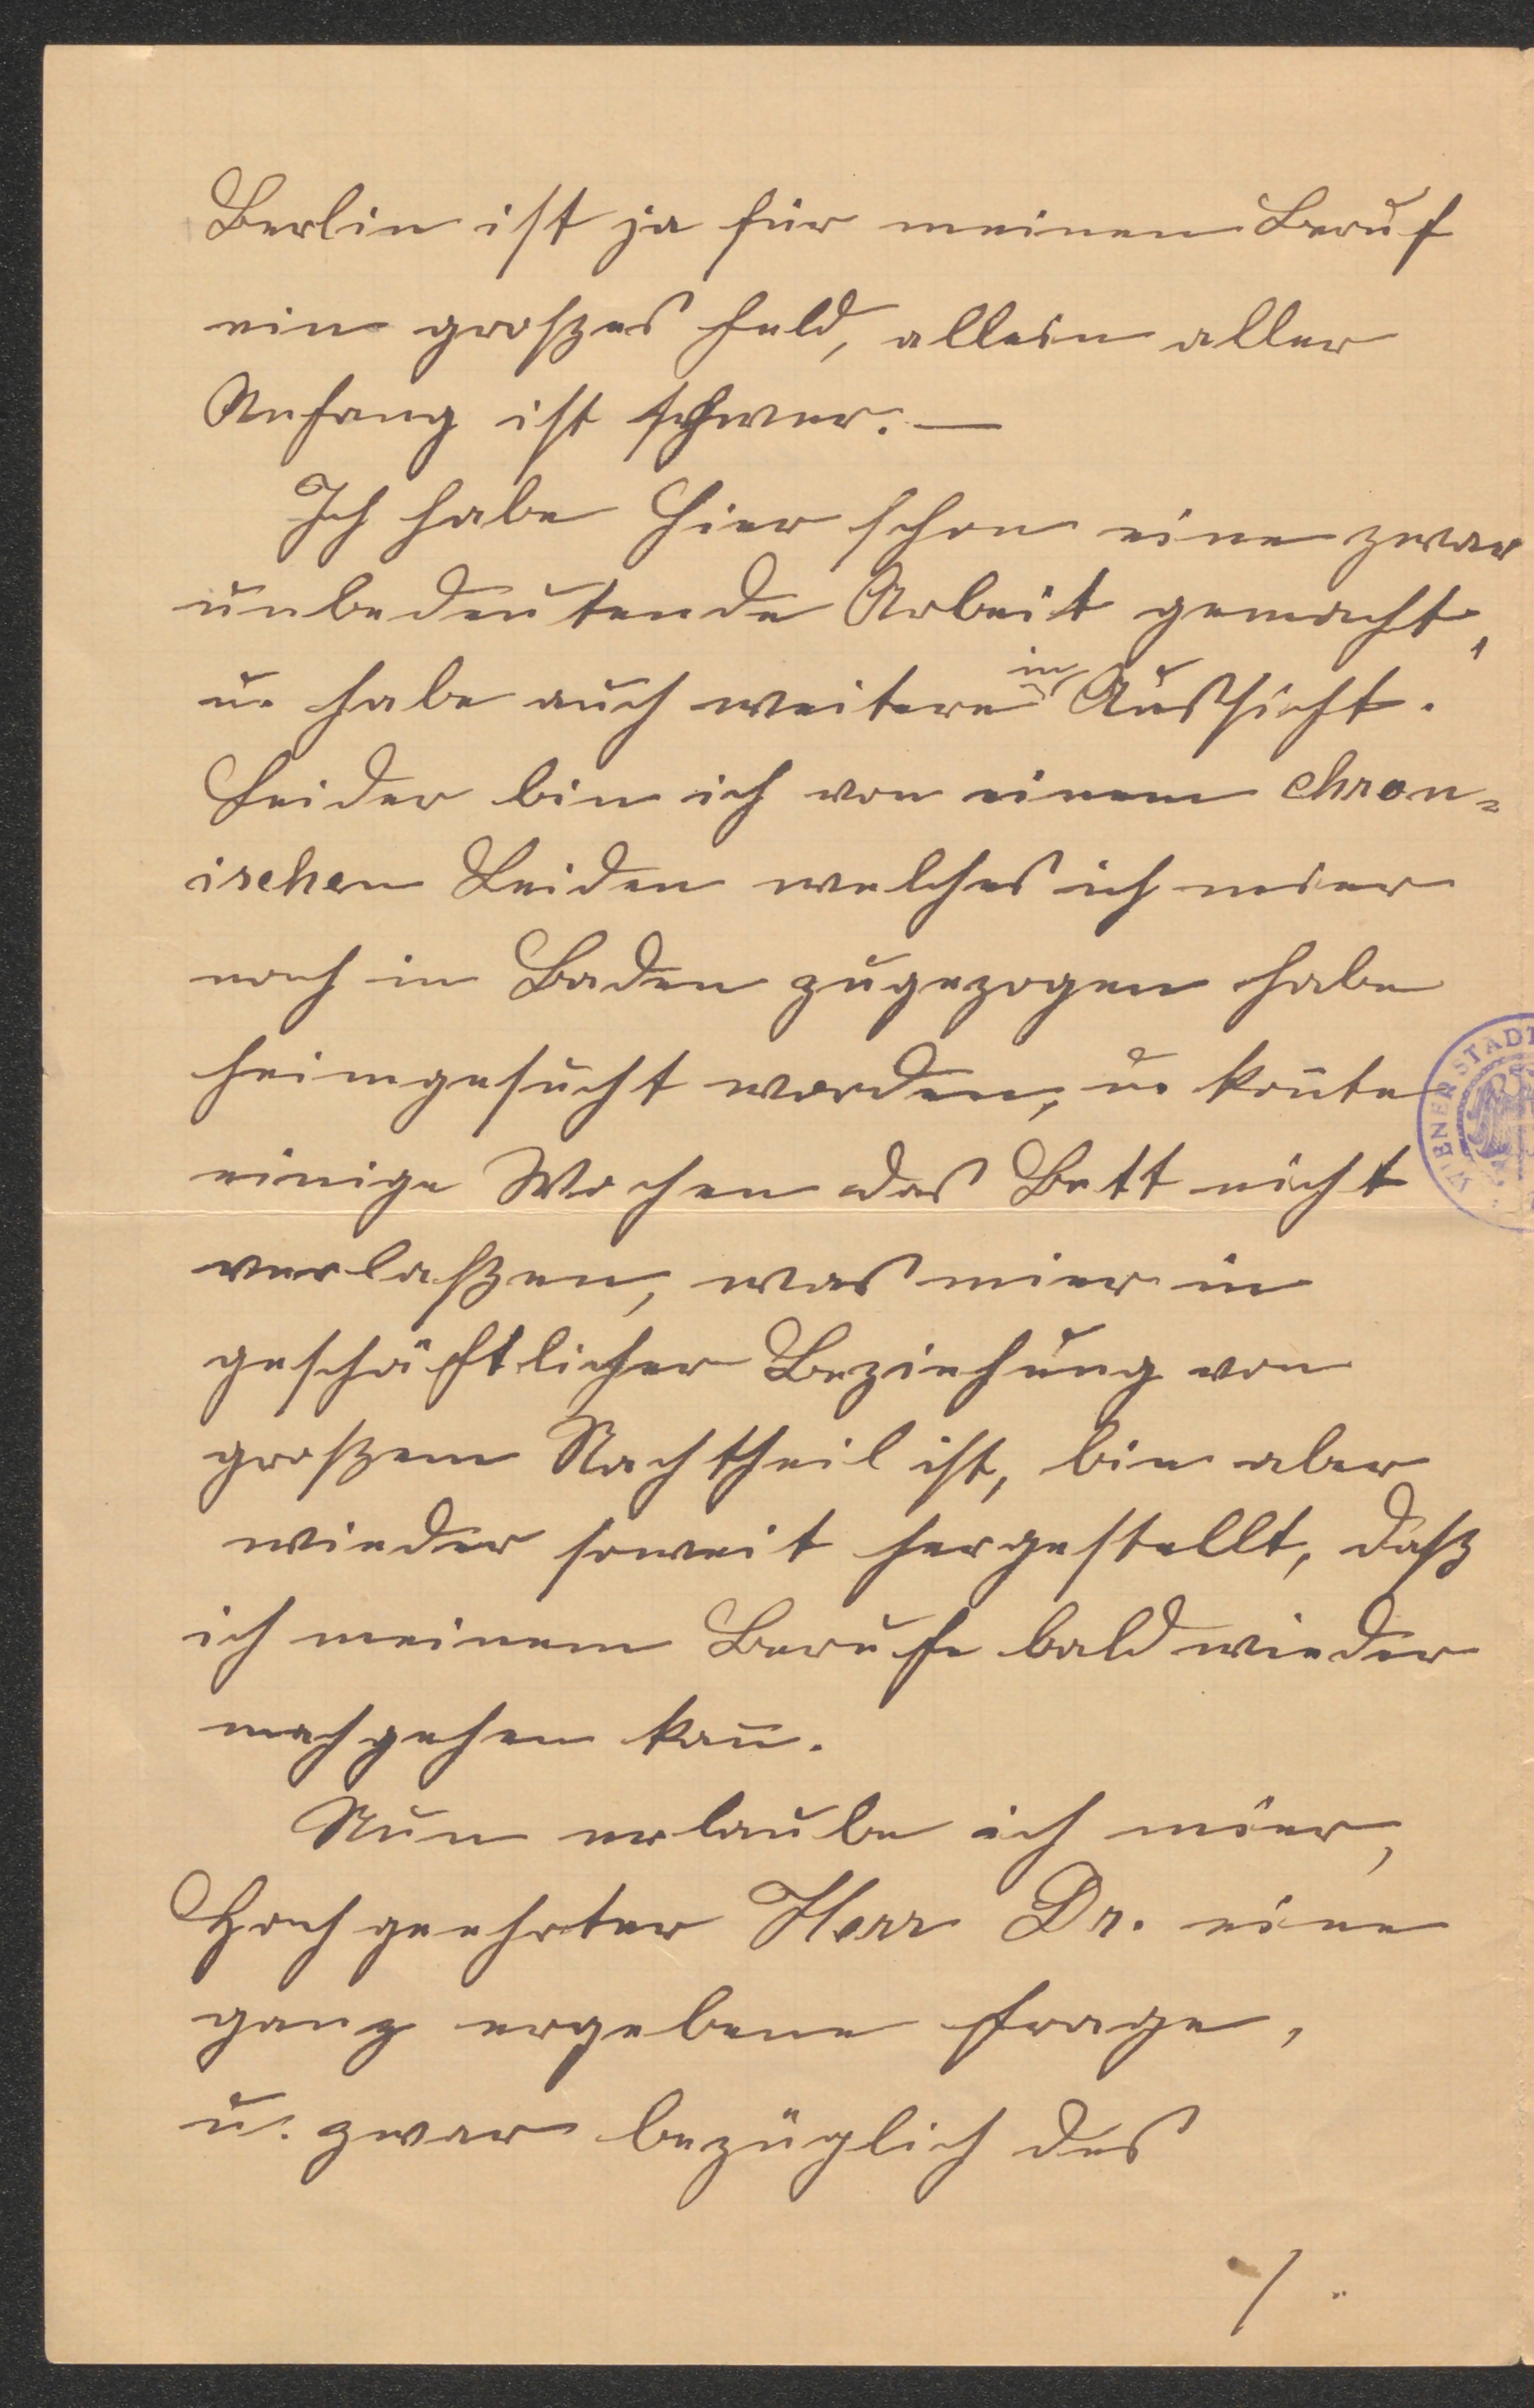 Berlin ist ja für meinen Beruf
ein großes Feld, allein aller
Anfang ist schwer. —
Ich habe hier schon eine zwar
unbedeutende Arbeit gemacht,
u. habe auch weitere in Aussicht.
Leider bin ich von einem chron=
ischen Leiden welches ich mier
noch in Baden zugezogen habe
heimgesucht worden, u. kon̄te
einige Wochen das Bett nicht
verlaßen, was mier in
geschäftlicher Beziehung von
großem Nachtheil ist, bin aber
wieder soweit hergestellt, daß
ich meinem Berufe bald wieder
nachgehen kan̄.
Nun erlaube ich mier,
Hochgeehrter Herr Dr. eine
ganz ergebene Frage,
u. zwar bezüglich des
/.
WIENER STADT